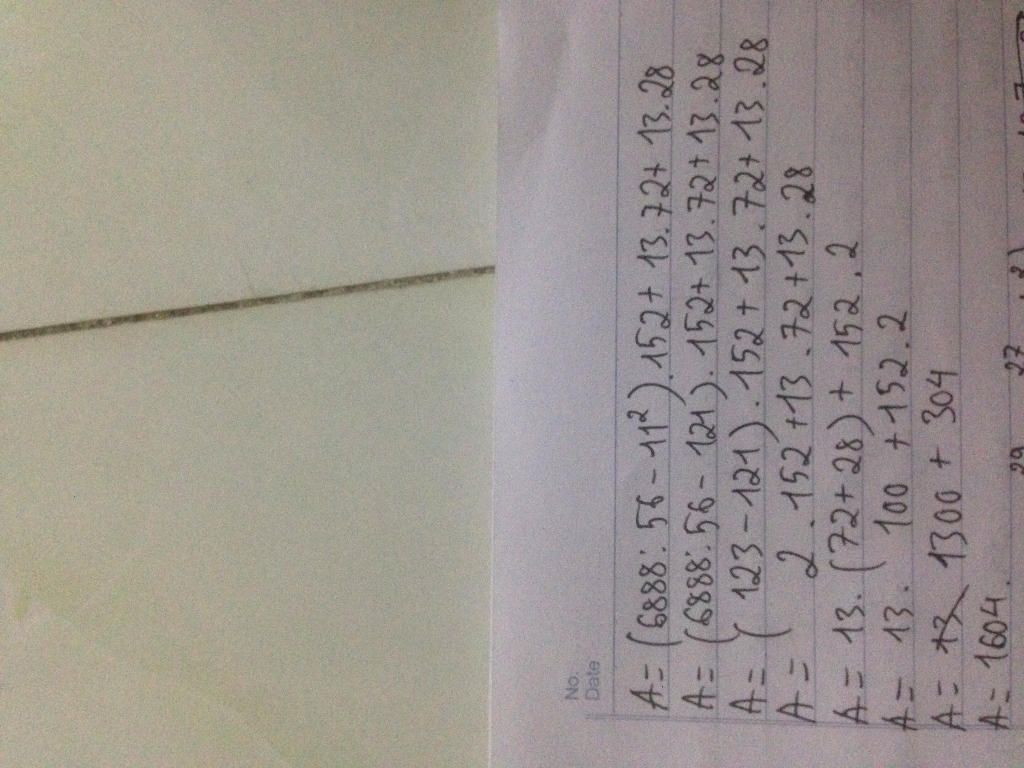 No.
Date
A = (6888 : 56 - 11²).152 + 13.72 + 13.28
A = (6888 : 56 - 121).152 + 13.72 + 13.28
A = (123 - 121).152 + 13.72 + 13.28
A = 2.152 + 13.72 + 13.28
A = 13.(72 + 28) + 152.2
A = 13. 100 + 152.2
A = 1300 + 304
A = 1604.
29 27